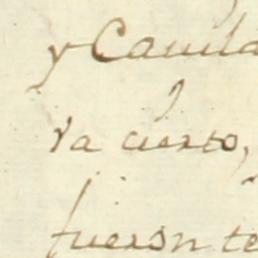 y Cavila
ra cierto,
fueron te